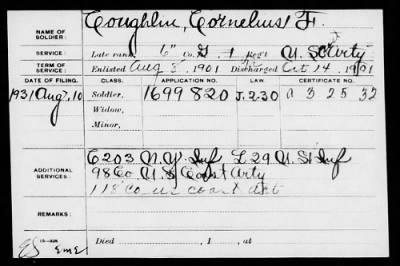 NAME OF SOLDIER: Coughlin, Cornelius F.
SERVICE: Late rank, 6" Co. G, 1 Reg't U.S. Arty
TERM OF SERVICE: Enlisted Aug 3, 1901 Discharged Oct 14, 1901
DATE OF FILING. CLASS. APPLICATION NO. LAW. CERTIFICATE NO.
1931 Aug, 10 Soldier, 1699820 J.2.30 a 3 25 32
Widow,
Minor,
C 203 N.Y. Inf L 29 U.S. Inf
ADDITIONAL SERVICES: 98 Co. U.S. Coast Arty
118" Co US Coast Art
REMARKS:
Died , 1 , at
EMS